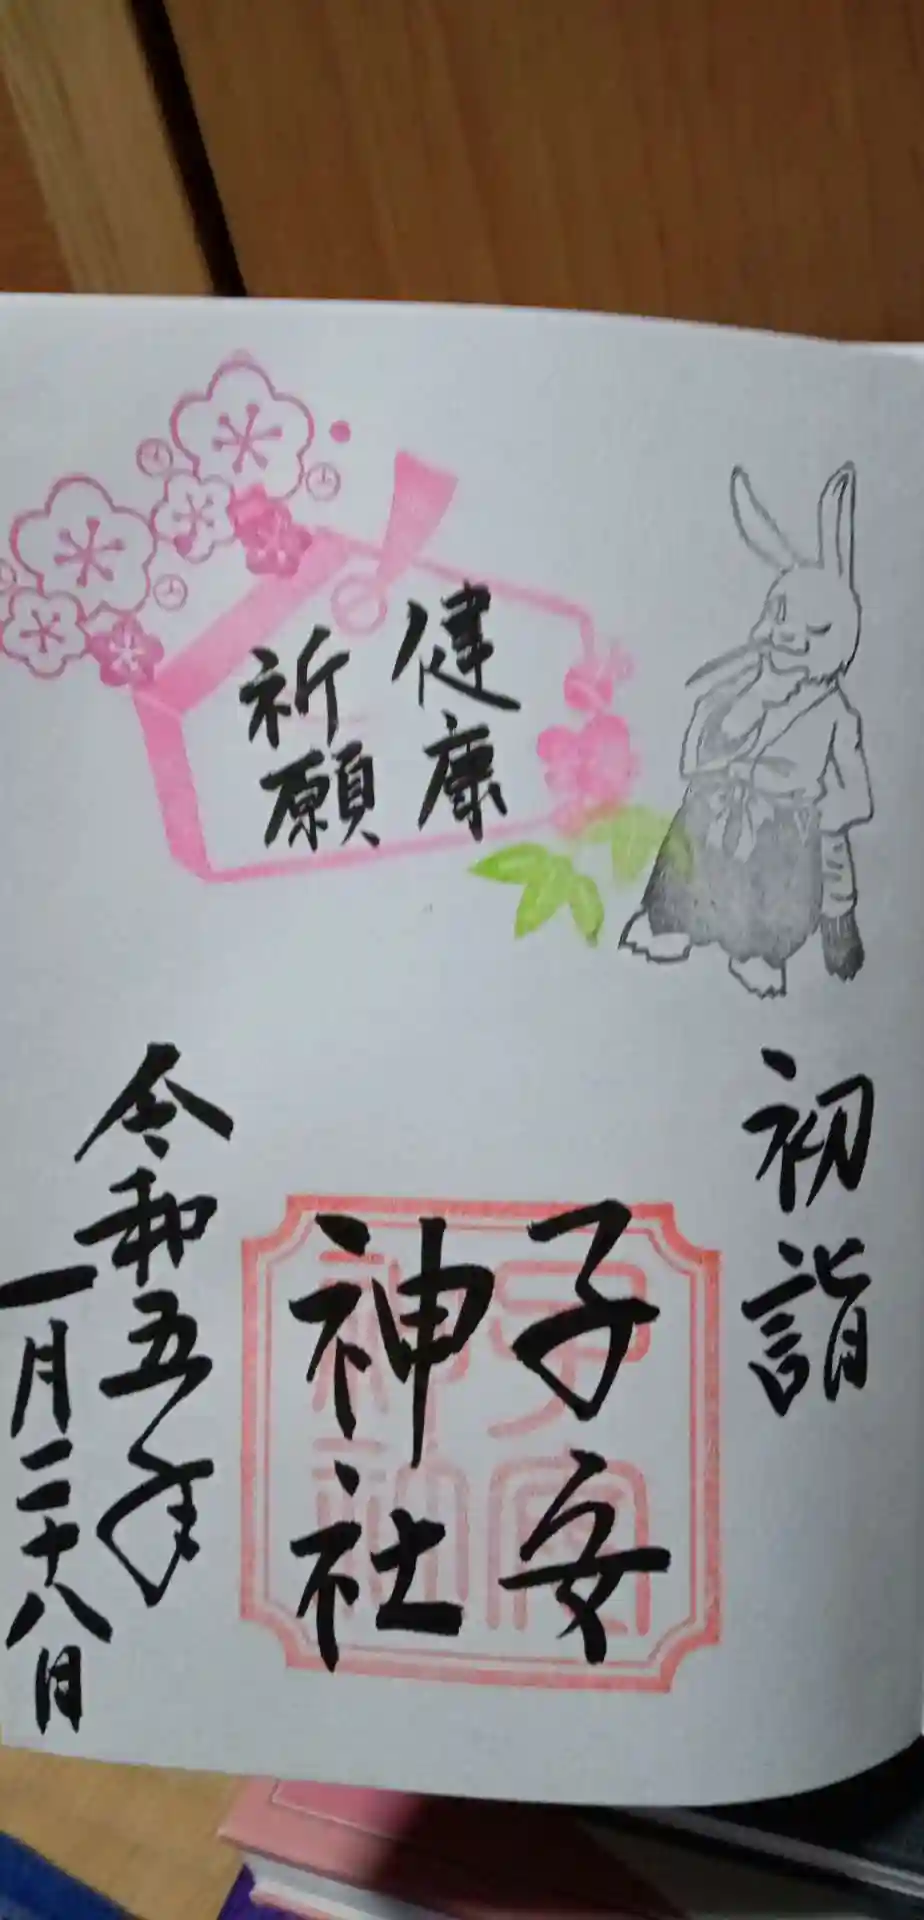 健康
祈願
初詣
子安
神社
令和五年
一月二十八日